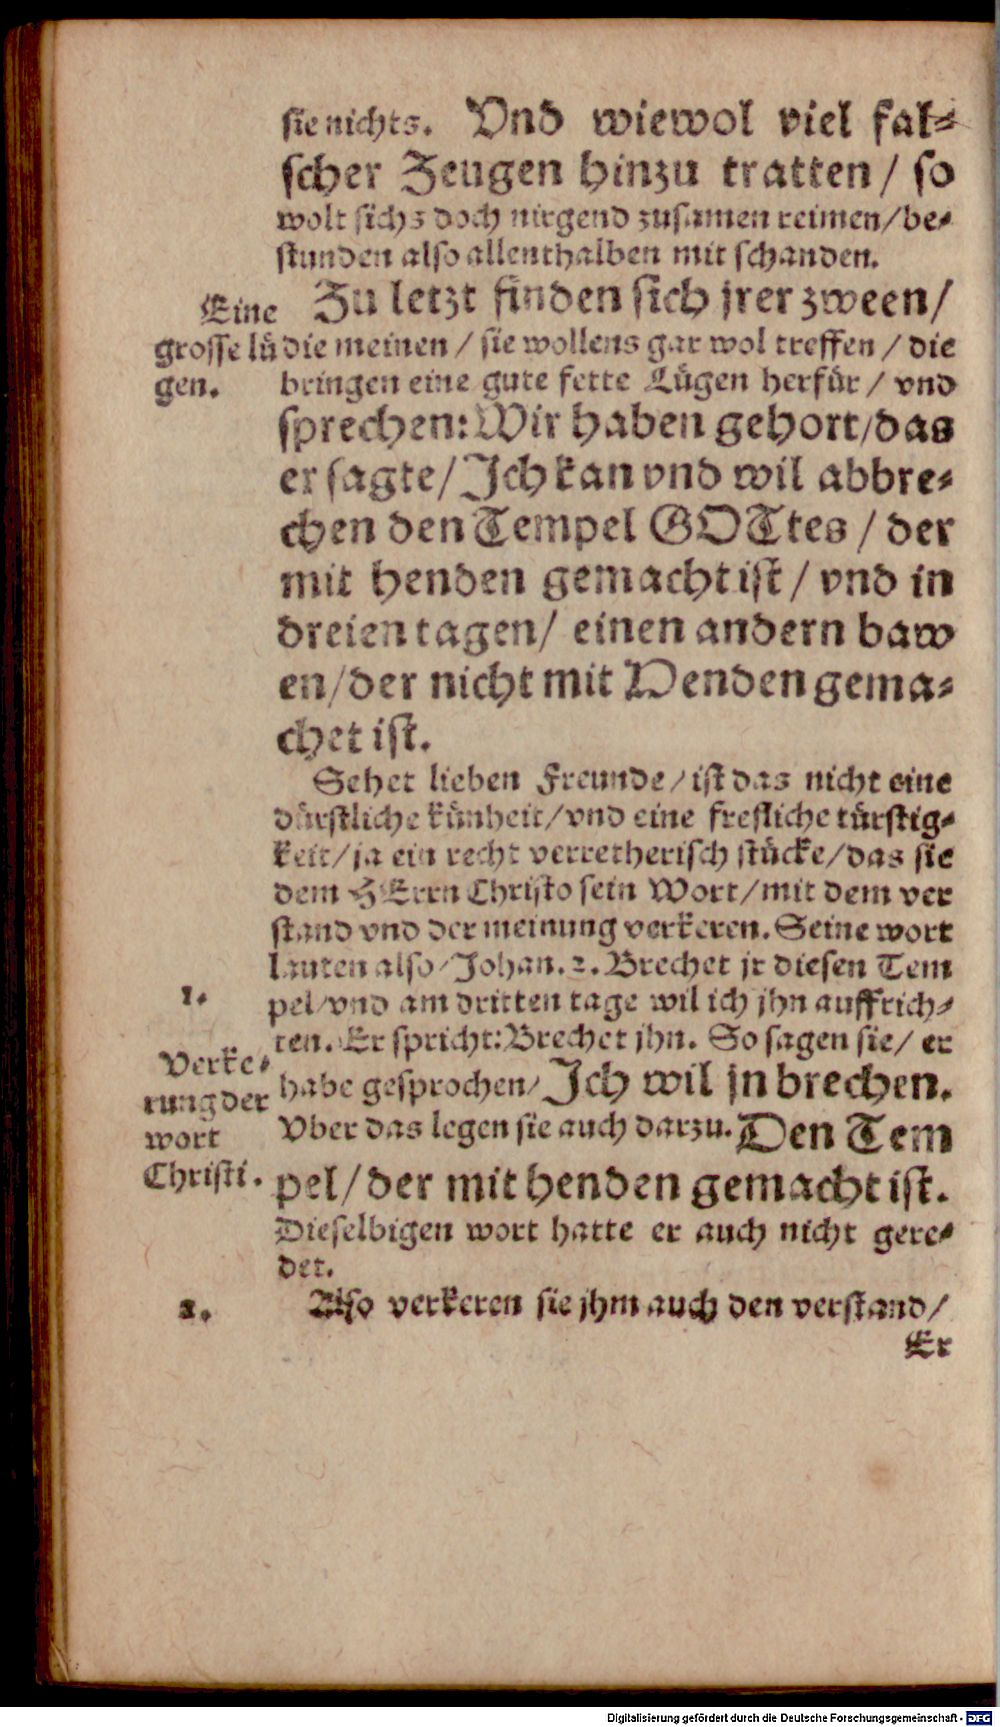 sie nichts. Vnd wiewol viel fal⸗
scher Zeugen hinzu tratten / so
wolt sichs doch nirgend zusamen reimen/be⸗
stunden also allenthalben mit schanden.
Zu letzt finden sich jrer zween/
die meinen / sie wollens gar wol treffen / die
bringen eine gute fette Lügen herfür / vnd
sprechen: Wir haben gehort/das
er sagte/ Ich kan vnd wil abbre⸗
chen den Tempel GOTtes / der
mit henden gemacht ist / vnd in
dreien tagen/ einen andern baw
en/der nicht mit Henden gema⸗
chet ist.
Eine
grosse lü
gen.
Sehet lieben Freunde/ist das nicht eine
dürstliche künheit/vnd eine frefliche türstig⸗
keit/ja ein recht verretherisch stücke/das sie
dem HErrn Christo sein Wort/mit dem ver
stand vnd der meinung verkeren. Seine wort
lauten also/Johan. 2. Brechet jr diesen Tem
pel/vnd am dritten tage wil ich jhn auffrich⸗
ten. Er spricht: Brechet jhn. So sagen sie/ er
habe gesprochen/ Ich wil jn brechen.
Vber das legen sie auch darzu. Den Tem
pel/der mit henden gemacht ist.
Dieselbigen wort hatte er auch nicht gere⸗
det.
1.
Verke⸗
rung der
wort
Christi.
2.
Also verkeren sie jhm auch den verstand/
Er
Digitalisierung gefördert durch die Deutsche Forschungsgemeinschaft - DFG